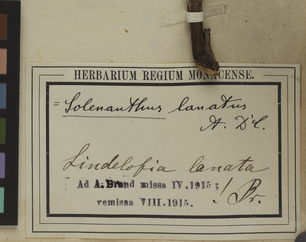 HERBARIUM REGIUM MONACENSE.
= Solenanthus lanatus
A. DC.
Lindelofia lanata
! Br.
Ad A. Brand missa IV. 1915;
remissa VIII. 1915.